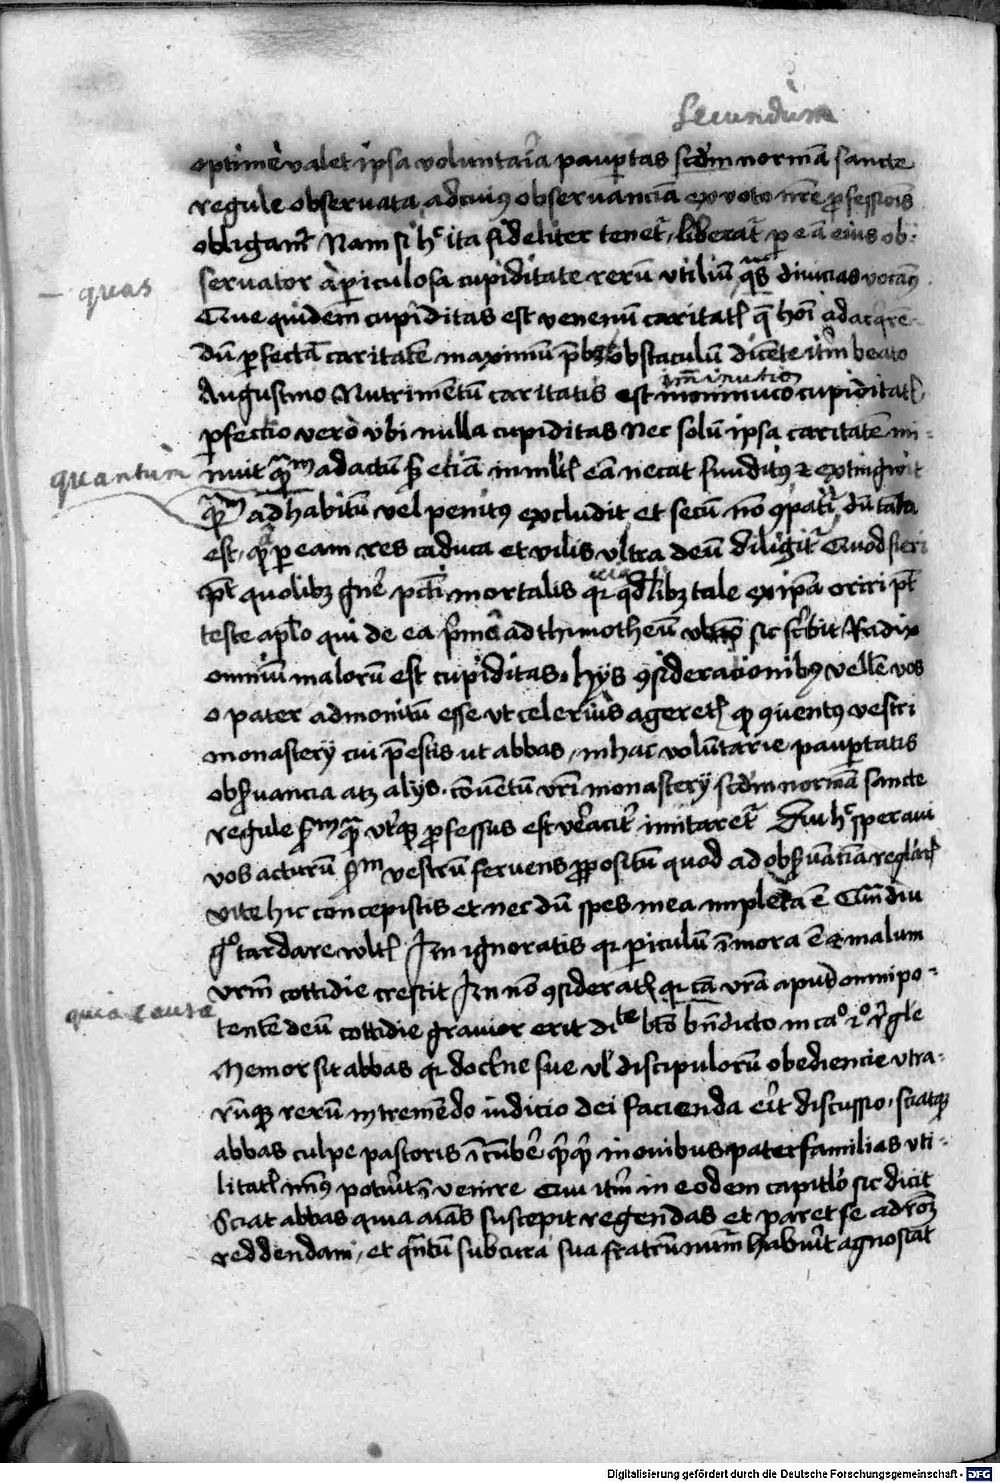 Secundum
optime valet ipsa voluntaria paupertas scdm normā sancte
regule observata, ad cuius observanciā ex voto nrē professiōis
obligamr̄. Nam si hc̄ ita fideliter tenet̄, liberat̄ per eā eius ob-
servator a periculosa cupiditate rerū utiliū qs divicias vocam9
quas
Que quidem cupiditas est venenū caritatis q̄ hoi ad acqre-
dū perfectā caritatē maximū p̄bet obstaculū dicēte itm̄ beato
Augustino Nutrimētū caritatis est imminutio cupiditatis
perfectio vero ubi nulla cupiditas Nec solū ipsa caritatē mi-
quantum
nuit qm ad actū sʒ etiā in mltis eā necat funditus et extingwit
qm ad habitū vel penitus excludit et secū nō cōpatit, dū tāta
est, qp per eam res caduca et vilis ultra deū diligit̄ Quod fieri
pt̄ quolibʒ gn̄e pcti mortalis qr qdlibʒ tale ex ipā oriri pt̄
teste aplo qui de ea prima ad thimotheū sic scribit Radix
omniū malorū est cupiditas. hys cōsideracionibus vellē vos
o pater admonitū esse ut celerius ageretis qp cōventus vestri
monastery cui p̄estis ut abbas, in hac volūtarie paupertatis
observancia atqʒ alys. cōventū vrī monastery scdm normā sancte
regule sm quā uterqʒ professus est veraciter imitaret̄ Diu hc̄ speravi
vos acturū sm vestrū fervens propositū quod ad observāciā reglaris
vite hic concepistis et nec dū spes mea impleta ē Quādiu
go tardare vultis An ignoratis qr periculū ī mora ē et malum
vrm̄ cottidie crescit An nō cōsideratis qr cā vrā apud omnipo-
quia causa
tentē deū cottidie gravior erit dicte bto bn̄dicto in cao 2o rgle
Memor sit abbas qr doctrine sue vl discipulorū obediencie utra-
rūqʒ rerū in tremēdo iudicio dei facienda erit discussio, sciatqʒ
abbas culpe pastoris īcūbere qcqd in ovibus paterfamilias uti-
litatis min9 potuerit īvenire Qui itm̄ in eodem capitlo sic dicit
Sciat abbas quia aīas suscepit regendas et paret se ad roēʒ
reddendam, et qntū sub cura sua fratrū numm̄ habuerit agnoscat
Digitalisierung gefördert durch die Deutsche Forschungsgemeinschaft - DFG